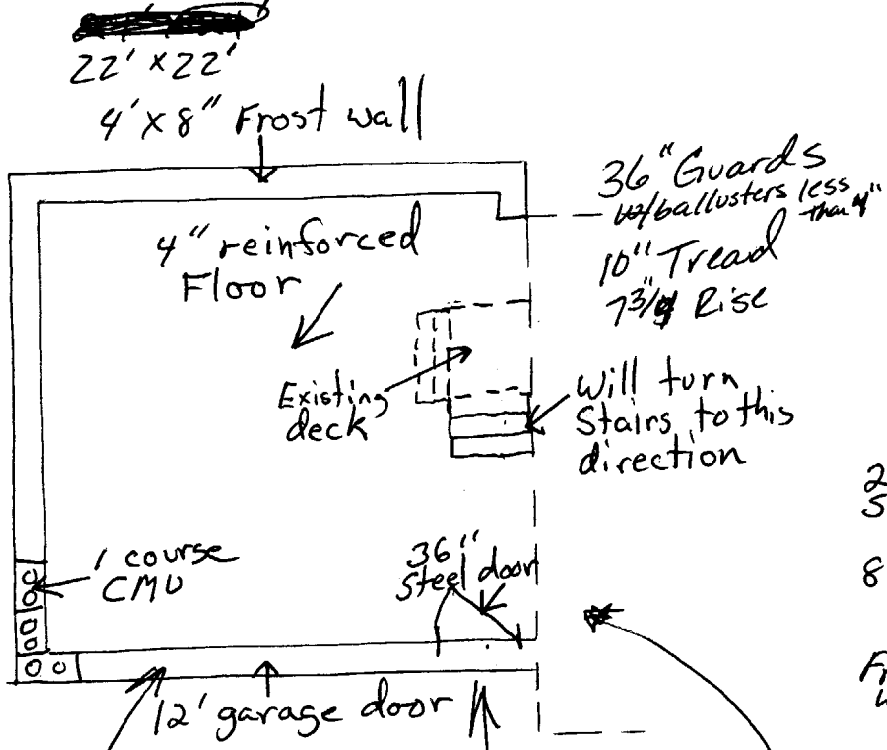 22' x 22'
4' x 8" Frost wall
36" Guards
w/ballusters less
than 4"
10" Tread
7 3/4 Rise
4" reinforced
Floor
Existing
deck
Will turn
Stairs to this
direction
1 course
CMU
36"
Steel door
12' garage door
2
S
8